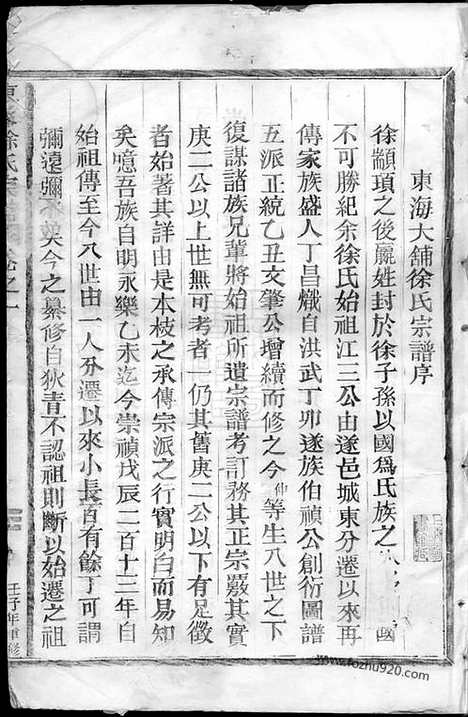 東海大舖徐氏宗譜序
徐顓頊之後嬴姓封於徐子孫以國爲氏族之 國
不可勝紀余徐氏始祖江三公由遂邑城東分遷以來再
傳家族盛人丁昌熾自洪武丁卯遂族伯禎公創衍圖譜
五派正統乙丑文肇公增續而修之今仲等生八世之下
復謀諸族兄輩將始祖所遺宗譜考訂務其正宗覈其實
庚二公以上世無可考者一仍其舊庚二公以下有足徵
者始著其詳由是本枝之承傳宗派之行實明白而易知
矣噫吾族自明永樂乙未迄今崇禎戊辰二百十三年自
始祖傳至今八世由一人分遷以來小長百有餘丁可謂
彌遠彌 矣今之纂修自狄青不認祖則斷以始遷之祖
徐氏宗譜 卷之一
壬子年重修
www.fozhu920.com